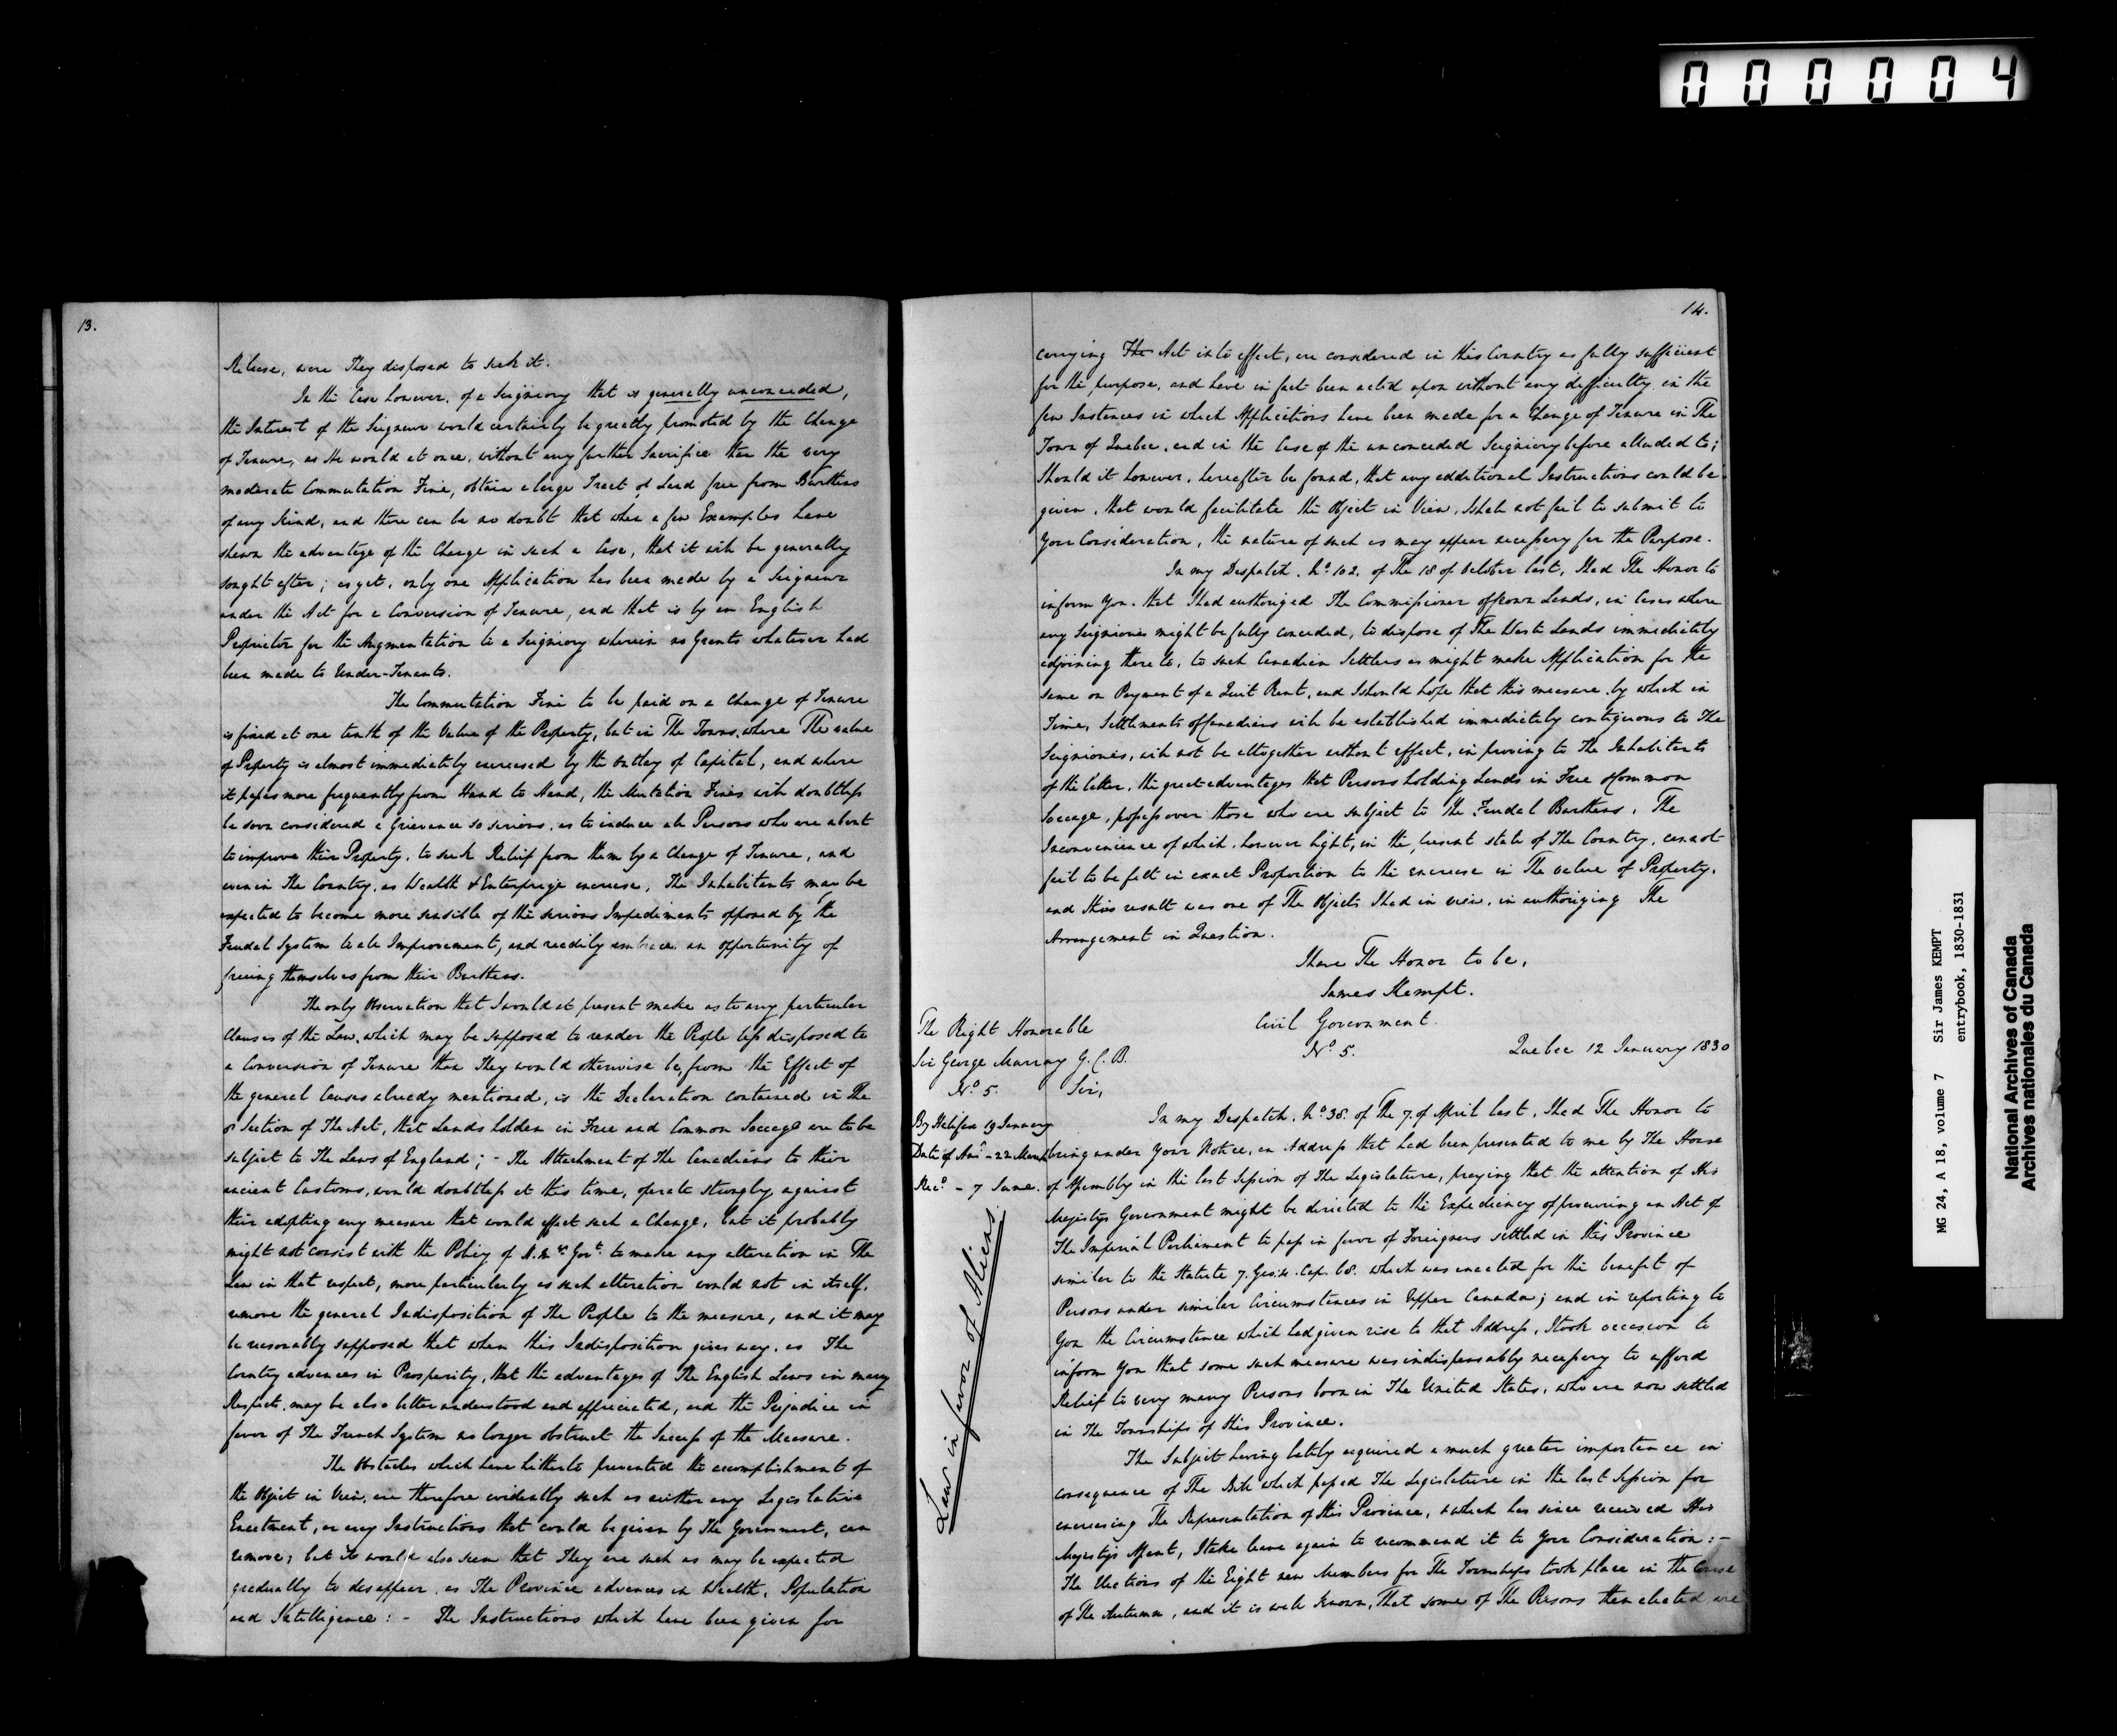 000004
13.
Release, were They disposed to seek it.
In the Case however, of a Seigniory that is generally unconceded,
the Interest of the Seigneur would certainly be greatly promoted by the Change
of Tenure, as He would at once, without any further Sacrifice than the very
moderate Commutation Fine, obtain a large Tract of Land free from Burthens
of any Kind, and there can be no doubt that when a few Examples have
shewn the advantage of the Change in such a Case, that it will be generally
sought after; as yet, only one Application has been made by a Seigneur
under the Act for a Conversion of Tenure, and that is by an English
Proprietor for the Augmentation to a Seigniory wherein no Grants whatever had
been made to Under-Tenants.
The Commutation Fine to be paid on a Change of Tenure
is fixed at one tenth of the Value of the Property, but in The Towns, where The value
of Property is almost immediately encreased by the Outlay of Capital, and where
it passes more frequently from Hand to Hand, the Mutation Fines will doubtless
be soon considered a Grievance so serious, as to induce all Persons who are about
to improve their Property, to seek Relief from them by a Change of Tenure, and
even in The Country, as Wealth & Enterprize encrease, The Inhabitants may be
expected to become more sensible of the serious Impediments opposed by the
Feudal System to all Improvement, and readily embrace an opportunity of
freeing themselves from their Burthens.
The only Observation that I would at present make as to any particular
Clauses of the Law, which may be supposed to render the People less disposed to
a Conversion of Tenure than They would otherwise be, from the Effect of
the general Causes already mentioned, is the Declaration contained in The
8 Section of The Act, that Lands holden in Free and Common Soccage are to be
subject to The Laws of England; - The Attachment of The Canadians to their
ancient Customs, would doubtless at this time, operate strongly against
their adopting any measure that would effect such a Change, but it probably
might not consist with the Policy of H. M's. Govt. to make any alteration in The
Law in that respect, more particularly as such alteration would not in itself,
remove the general Indisposition of The People to the measure, and it may
be reasonably supposed that when this Indisposition gives way, as The
Country advances in Prosperity, that the advantages of The English Laws in many
Respects, may be also better understood and appreciated, and the Prejudice in
favor of The French System no longer obstruct the Success of the Measure.
The Obstacles which have hitherto prevented the accomplishment of
the Object in View, are therefore evidently such as neither any Legislative
Enactment, or any Instructions that could be given by The Government, can
remove; but it would also seem that They are such as may be expected
gradually to disappear, as The Province advances in Wealth, Population
and Intelligence: - The Instructions which have been given for
14.
carrying The Act into effect, are considered in this Country as fully sufficient
for the purpose, and have in fact been acted upon without any difficulty, in the
few Instances in which Applications have been made for a Change of Tenure in The
Town of Quebec, and in the Case of the unconceded Seigniory before alluded to;
Should it however, hereafter be found, that any additional Instructions could be
given, that would facilitate the Object in View, I shall not fail to submit to
Your Consideration, the nature of such as may appear necessary for the Purpose.
In my Despatch, No. 102, of The 18 of October last, I had The Honor to
inform You, that I had authorized The Commissioner of Crown Lands, in Cases where
any Seigniories might be fully conceded, to dispose of The Waste Lands immediately
adjoining there to, to such Canadian Settlers as might make Application for the
same on Payment of a Quit Rent, and I should hope that this measure, by which in
Time, Settlements of Canadians will be established immediately contiguous to The
Seigniories, will not be altogether without effect, in proving to The Inhabitants
of the latter, the great advantages that Persons holding Lands in Free & Common
Soccage, possess over those who are subject to the Feudal Burthens, The
Inconvenience of which, however light, in the present state of The Country, cannot
fail to be felt in exact Proportion to the encrease in The value of Property,
and this result was one of The Objects I had in view, in authorizing The
Arrangement in Question.
I have The Honor to be,
James Kempt.
The Right Honorable
Sir George Murray G.C.B.
No. 5.
Civil Government.
No. 5.
Quebec 12 January 1830
Sir,
By Halifax 19 January
Date of Ansr. - 22 March
Recd. - 7 June.
Law in favor of Aliens.
In my Despatch, No. 38. of The 7. of April last, I had The Honor to
bring under Your Notice, an Address that had been presented to me by The House
of Assembly in the last Session of The Legislature, praying that the attention of His
Majesty's Government might be directed to the Expediency of procuring an Act of
The Imperial Parliament to pass in favor of Foreigners settled in this Province
similar to the Statute 7. Geo. 4. Cap. 68. which was enacted for the benefit of
Persons under similar Circumstances in Upper Canada; and in reporting to
You the Circumstance which had given rise to that Address, I took occasion to
inform You that some such measure was indispensably necessary to afford
Relief to very many Persons born in The United States, who are now settled
in The Townships of this Province.
The Subject having lately acquired a much greater importance in
consequence of The Bill which passed The Legislature in the last Session for
encreasing The Representation of this Province, & which has since received His
Majesty's Assent, I take leave again to recommend it to Your Consideration: -
The Elections of the Eight new Members for The Townships took place in the Course
of The Autumn, and it is well known, That some of The Persons then elected are
MG 24, A 18, volume 7 Sir James KEMPT
entrybook, 1830-1831
National Archives of Canada
Archives nationales du Canada